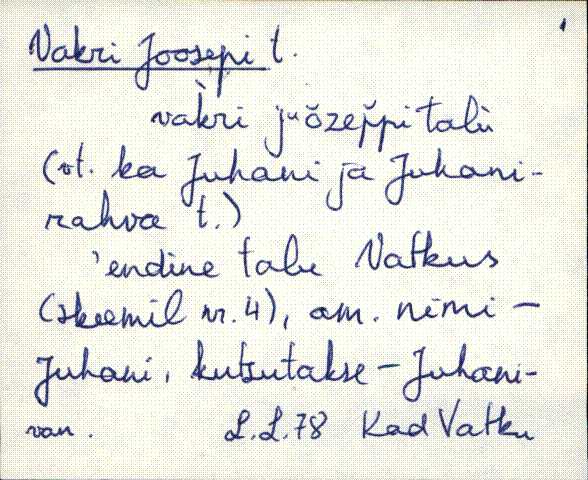 Vakri Joosepi t.
vàkri juŏzep̆pi talù
(vt. ka Juhani ja Juhani-
rahva t.)
'endine talu Vatkus
(skeemil nr. 4), am. nimi –
Juhani, kutsutakse – Juhani-
van. L.L.78 Kad Vatku